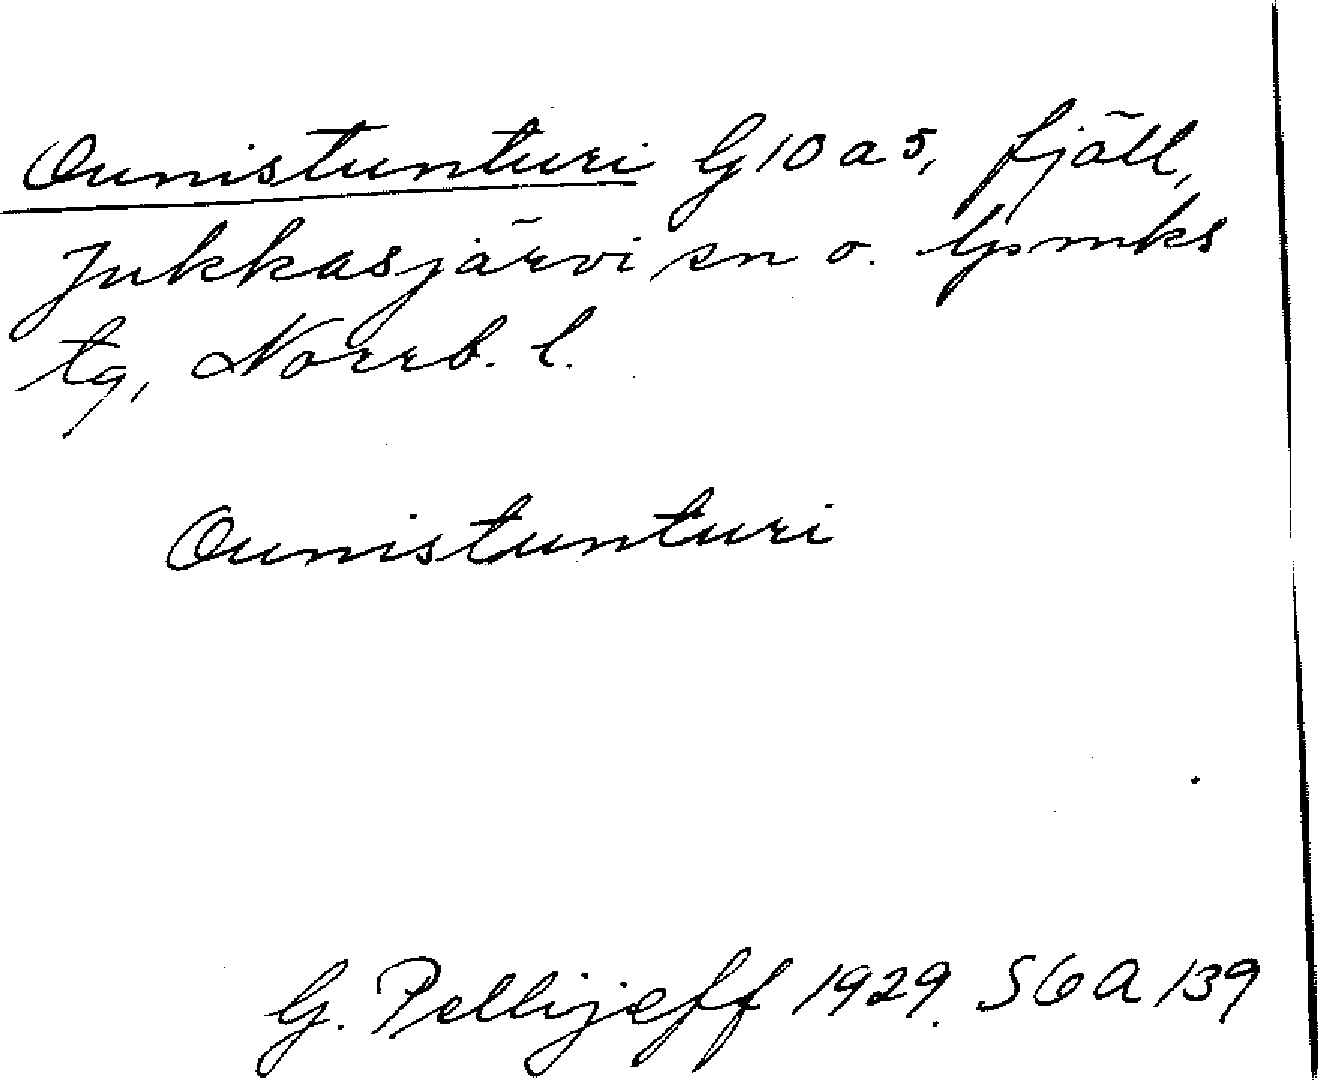 Ounistunturi G10a5, fjäll,
Jukkasjärvi sn o. lpmks
tg, Norrb. l.
Ounistunturi
G. Pellijeff 1929. SGA 139